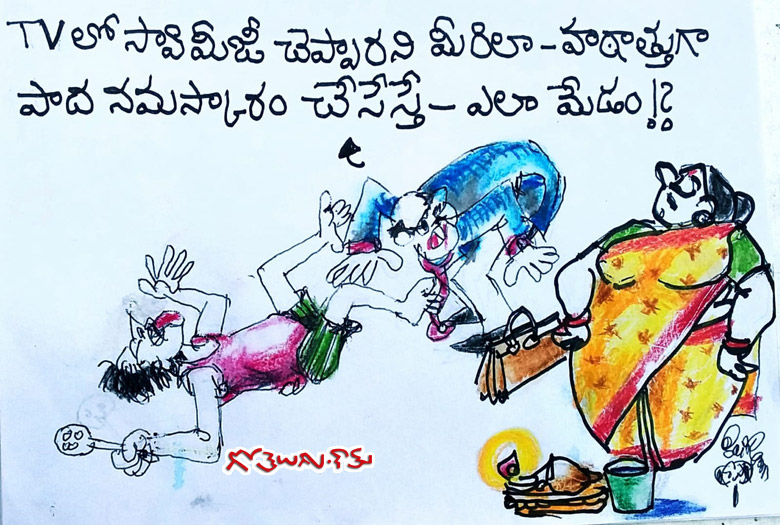 TV లో స్వామీజీ చెప్పారని మీరిలా - హఠాత్తుగా
పాద నమస్కారం చేసేస్తే - ఎలా మేడం!?
గోతెలుగు.కామ్